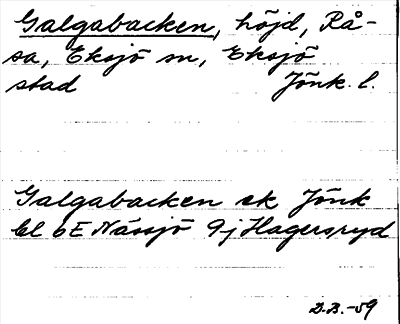 Galgabacken, höjd, Rå-
sa, Eksjö sn, Eksjö
stad Jönk. l.
Galgabacken ek Jönk
bl 6E Nässjö 9j Hagersryd
D.B.-59